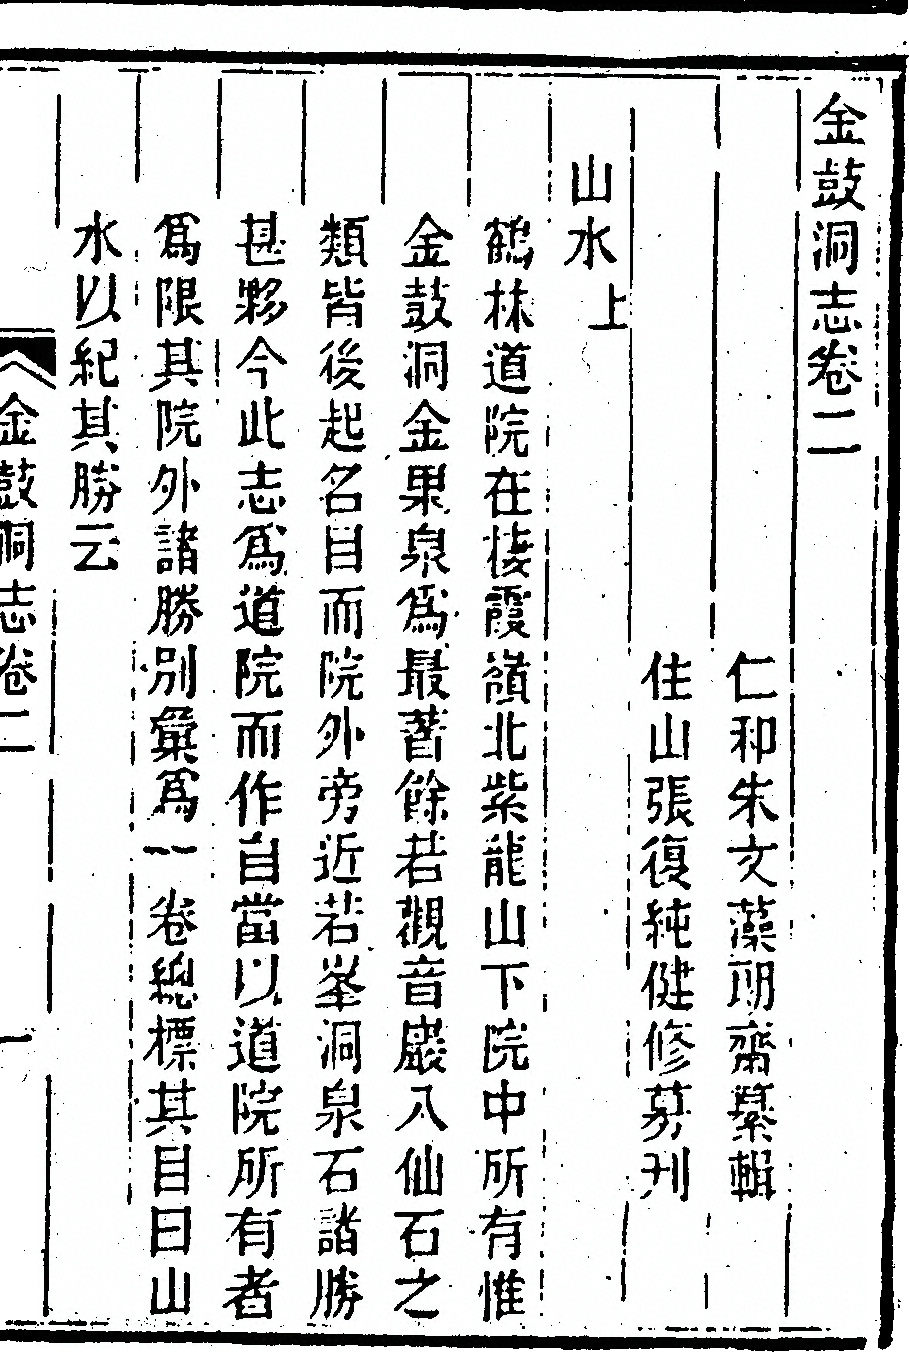 金鼓洞志卷二
仁和朱文藻朗齋纂輯
住山張復純健修募刊
山水上
鶴林道院在棲霞嶺北紫龍山下院中所有惟
金鼓洞金果泉爲最著餘若觀音巖八仙石之
類皆後起名目而院外旁近若峯洞泉石諸勝
甚夥今此志爲道院而作自當以道院所有者
爲限其院外諸勝別彙爲一卷總標其目曰山
水以紀其勝云
金鼓洞志卷二
一